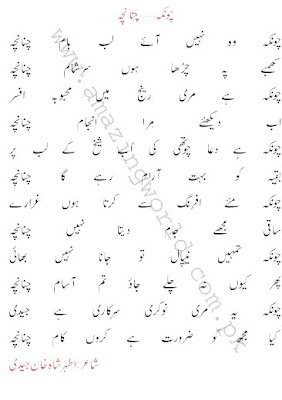 چونکہ ---- چنانچہ
چونکہ وہ نہیں آئے لب بام چنانچہ
کھمبے پہ چڑھا ہوں سرشام چنانچہ
چونکہ ہے مری رینج میں محبوبہ افسر
اب دیکھئے مرا انجام چنانچہ
چونکہ ہے دعا چوتھی کی اب شیخ کے لب پر
بقیہ کو بہت آرام رہے گا چنانچہ
چونکہ مئے افرنگ سے کرتا ہوں غرارے
ساقی مجھے جام دیتا نہیں چنانچہ
چونکہ تمہیں نیپال تو جانا نہیں بھائی
پھر کیوں نہ چلے جاؤ تم آسام چنانچہ
چونکہ یہ مری نوکری سرکاری ہے جیدی
کیا مجھ کو ضرورت ہے کروں کام چنانچہ
شاعر: اطہر شاہ خان جیدی
www.amazingworld.com.pk